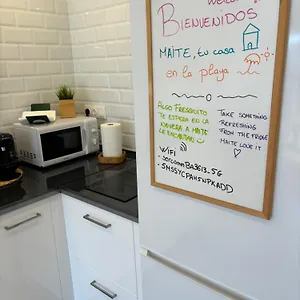 WELCOME
BIENVENIDOS
MAITE, tu casa
en la playa
ALGO FRESQUITO
TE ESPERA EN LA
NEVERA A MAITE
LE ENCANTAN
TAKE SOMETHING
REFRESHING
FROM THE FRIDGE
MAITE LOVE IT
WiFi